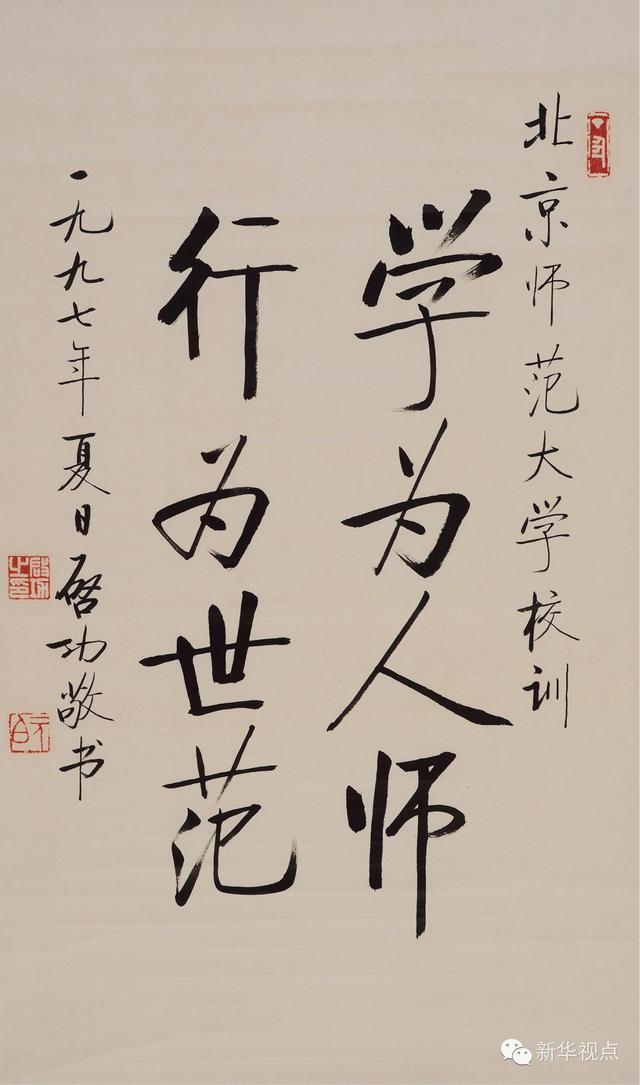 北京师范大学校训
学为人师
行为世范
一九九七年夏日启功敬书
启功之印
元白
新华视点